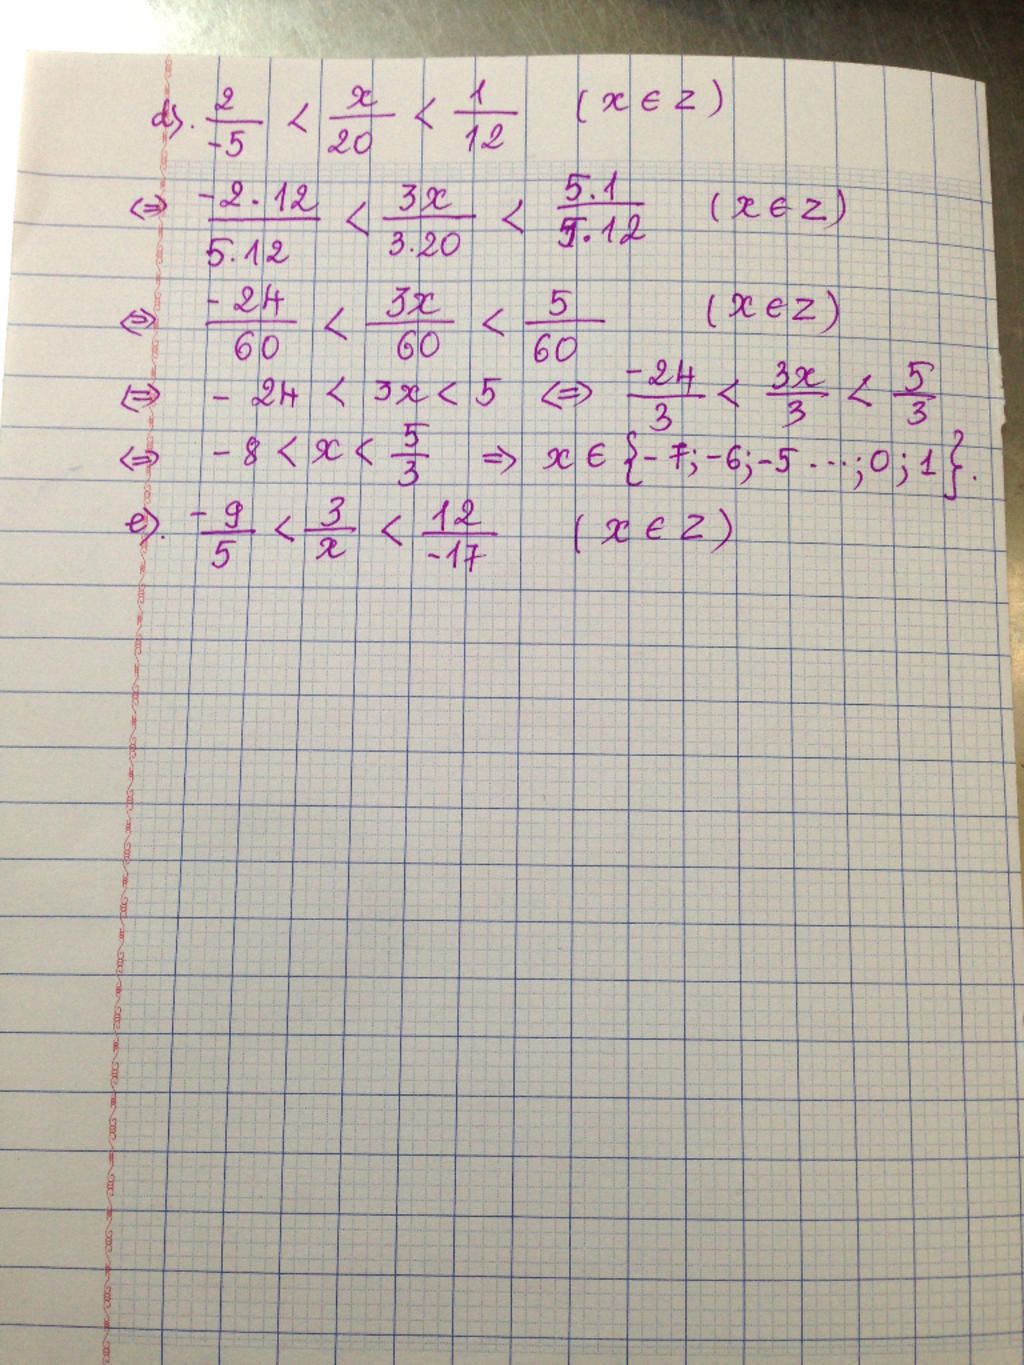 d). 2/-5 < x/20 < 1/12 (x ∈ Z)
⇔ -2.12/5.12 < 3x/3.20 < 5.1/5.12 (x ∈ Z)
⇔ -24/60 < 3x/60 < 5/60 (x ∈ Z)
⇔ -24 < 3x < 5 ⇔ -24/3 < 3x/3 < 5/3
⇔ -8 < x < 5/3 ⇒ x ∈ {-7; -6; -5 ...; 0; 1}.
e). -9/5 < 3/x < 12/-17 (x ∈ Z)